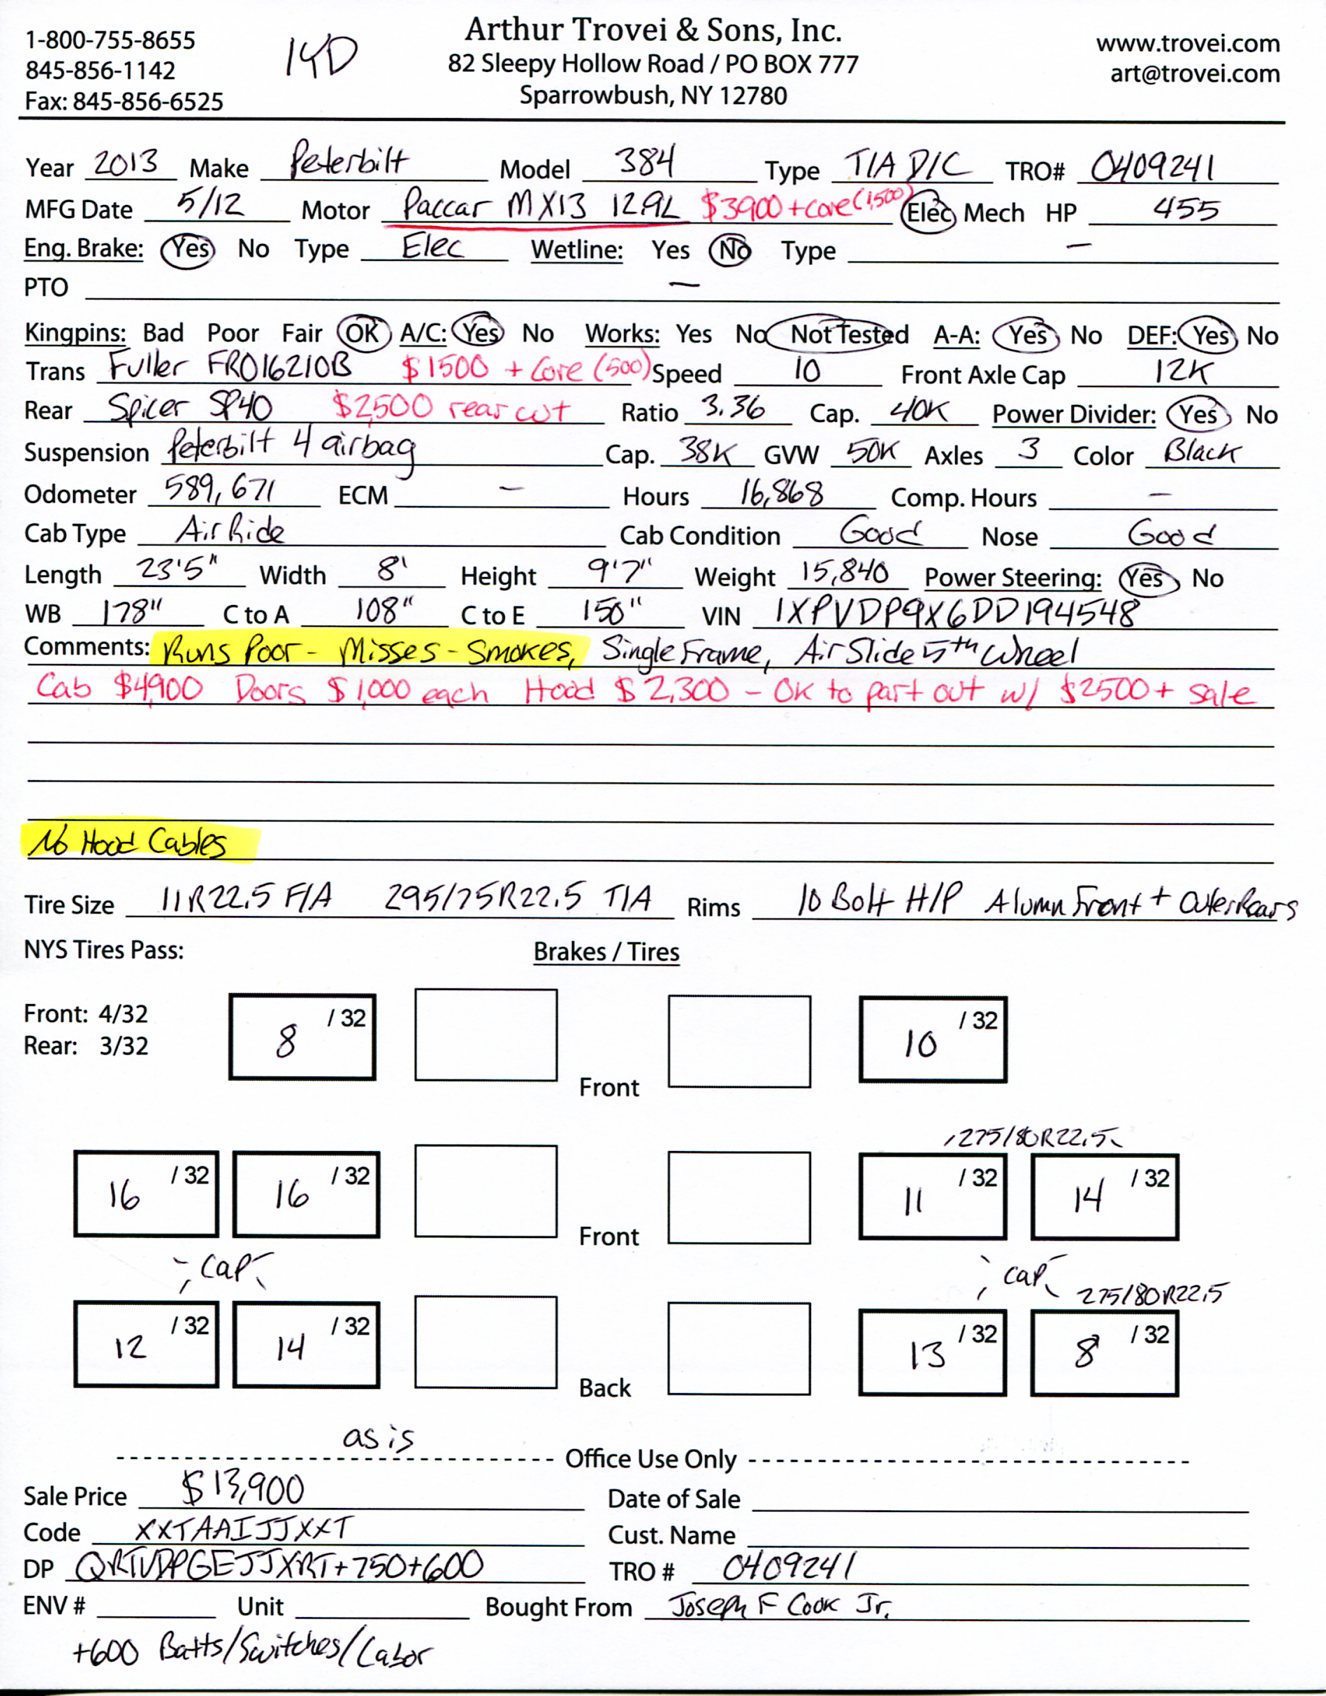 1-800-755-8655
845-856-1142
Fax: 845-856-6525
14D
Arthur Trovei & Sons, Inc.
82 Sleepy Hollow Road / PO BOX 777
Sparrowbush, NY 12780
www.trovei.com
art@trovei.com
Year 2013 Make Peterbilt Model 384 Type T/A D/C TRO# 0409241
MFG Date 5/12 Motor Paccar MX13 12.9L $3900 + core (1,500) Elec Mech HP 455
Eng. Brake: Yes No Type Elec Wetline: Yes No Type —
PTO —
Kingpins: Bad Poor Fair OK A/C: Yes No Works: Yes No Not Tested A-A: Yes No DEF: Yes No
Trans Fuller FRO16210B $1500 + Core (500) Speed 10 Front Axle Cap 12K
Rear Spicer SP40 $2,500 rear cut Ratio 3.36 Cap. 40K Power Divider: Yes No
Suspension Peterbilt 4 airbag Cap. 38K GVW 50K Axles 3 Color Black
Odometer 589,671 ECM — Hours 16,868 Comp. Hours —
Cab Type Air Ride Cab Condition Good Nose Good
Length 23'5" Width 8' Height 9'7" Weight 15,840 Power Steering: Yes No
WB 178" C to A 108" C to E 150" VIN 1XPVDP9X6DD194548
Comments: Runs Poor - Misses - Smokes, Single Frame, Air Slide 5th Wheel
Cab $4,900 Doors $1,000 each Hood $2,300 - OK to part out w/ $2500+ sale
No Hood Cables
Tire Size 11R22.5 F/A 295/75R22.5 T/A Rims 10 Bolt H/P Alumn Front + Outer Rears
NYS Tires Pass: Brakes / Tires
Front: 4/32
Rear: 3/32
8 /32 10 /32
Front
275/80R22.5
16 /32 16 /32 11 /32 14 /32
Front
CAP CAP
275/80R22.5
12 /32 14 /32 13 /32 8 /32
Back
as is
Office Use Only
Sale Price $13,900 Date of Sale
Code XXTAAIJJXXT Cust. Name
DP QRTVDPGEJJXRT+750+600 TRO # 0409241
ENV # Unit Bought From Joseph F Cook Jr.
+600 Batts/Switches/Labor